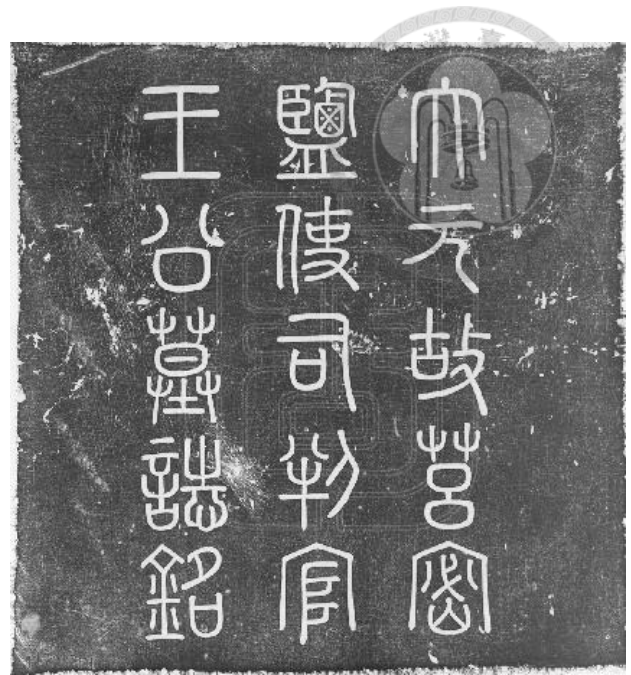 大元故莒密
鹽使司判官
王公墓誌銘